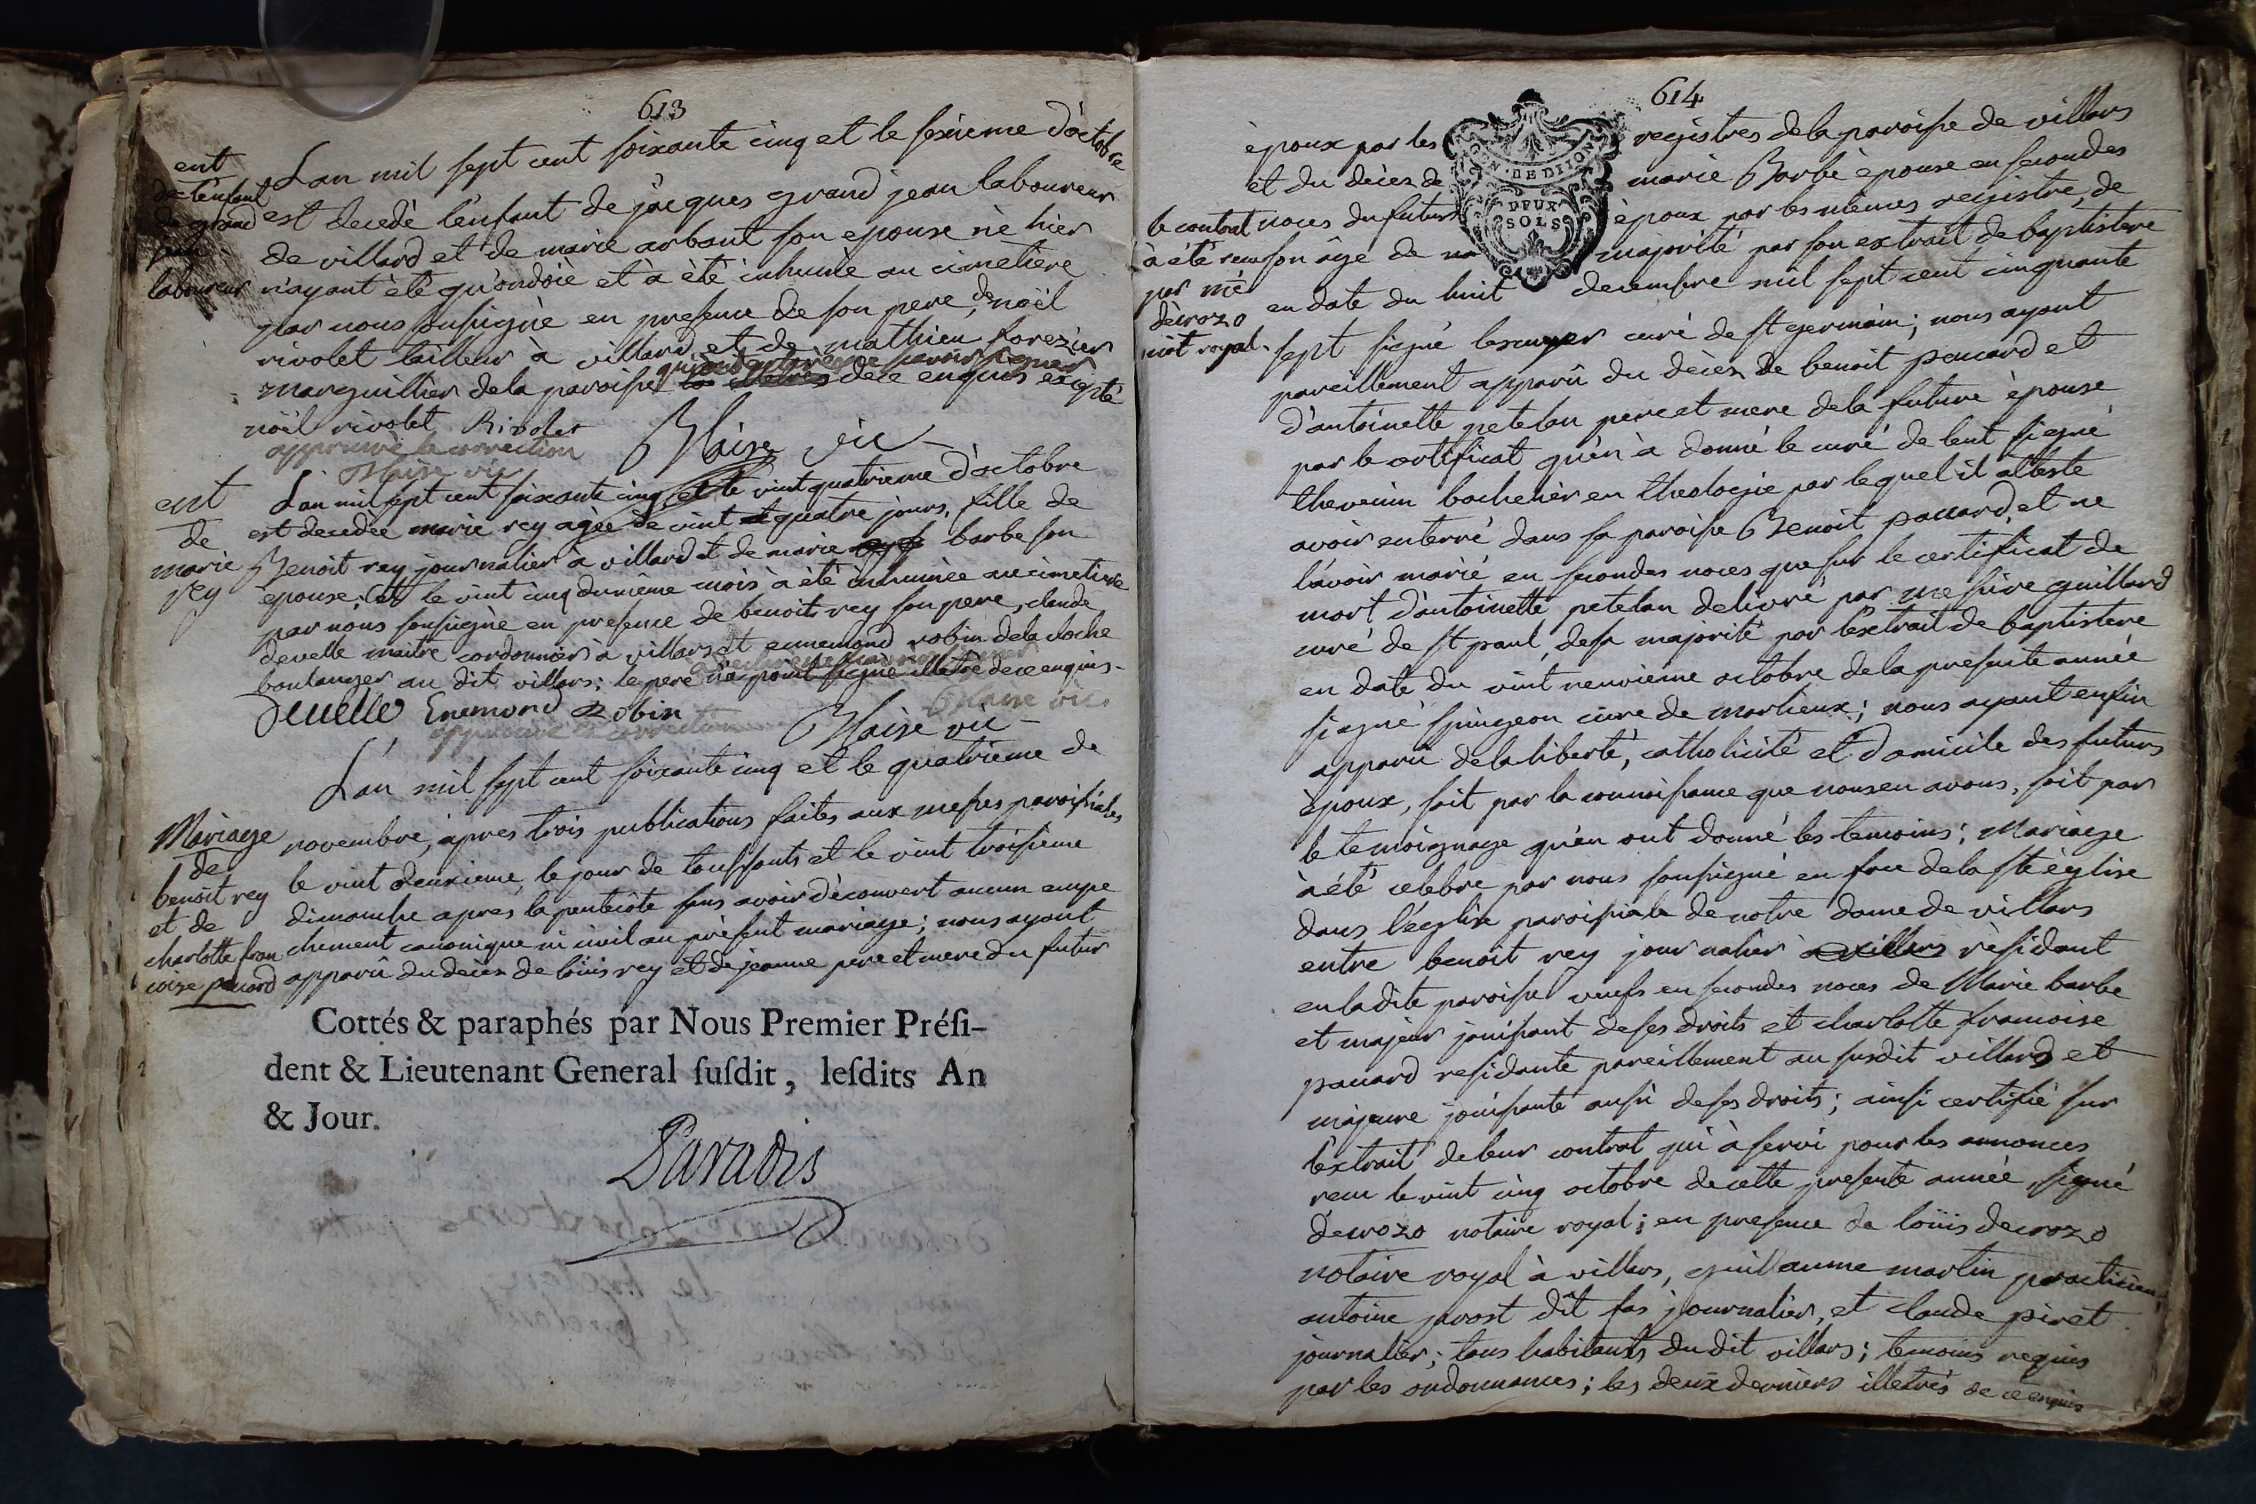 613
ent
de l'enfant
de grand
jean
laboureur
L'an mil sept cent soixante cinq et le seiziéme d'octobre
est decedé l'enfant de jacques grand jean laboureur
de villard et de marie arbant son epouse né hier
n'ayant été qu'ondoié et à été inhumé au cimetiere
par nous soussigné en presence de son pere, de noël
rivolet tailleur à villard et de mathieu forezier
marguillier de la paroisse de ce enquis excepté
noël rivolet Rivolet
approuvé la correction Blaise vic
Blaise vic
ent
de
marie
rey
L'an mil sept cent soixante cinq et le vint quatrieme d'octobre
est decedée marie rey agée de vint et quatre jours, fille de
Benoit rey journalier à villard et de marie barbe son
epouse; et le vint cinq du même mois à été inhumée au cimetiere
par nous soussigné en presence de benoit rey son pere, claude
devette maitre cordonnier à villars et ennemond robin de la cloche
boulanger au dit villars; le pere n'a point signé illetré de ce enquis.
Devette Enemond Robin
Blaise vic
approuvé la correction Blaise vic
Mariage
de
benoit rey
et de
charlotte fran
coise pauard
L'an mil sept cent soixante cinq et le quatrieme de
novembre, apres trois publications faites aux messes paroissiales
le vint deuxieme, le jour de toussaints et le vint troisieme
dimanche apres la pentecôte sans avoir découvert aucun empe
chement canonique ni civil au présent mariage; nous ayant
apparû du décez de loüis rey et de jeanne pere et mere du futur
Cottés & paraphés par Nous Premier Prési-
dent & Lieutenant General susdit, lesdits An
& Jour.
Paradis
614
GEN. DE DIJON
DEUX
SOLS
époux par les registres de la paroisse de villars
et du décez de marie Barbe épouse en secondes
noces du futur époux par les mêmes registre, de
son âge de majorité par son extrait de baptistere
en date du huit decembre mil sept cent cinquante
le contrat
à été reçu
par me
décrozo
not royal.
sept signé curé de st germain; nous ayant
pareillement apparû du décez de benoit pauard et
d'antoinette petelan pere et mere de la future épouse
par le certificat qu'en à donné le curé de lent signé
thevenin bachelier en theologie par lequel il atteste
avoir enterré dans sa paroisse Benoit pauard, et ne
l'avoir marié en secondes noces que sur le certificat de
mort d'antoinette petelan delivré par messire guillard
curé de st paul, de sa majorité par l'extrait de baptistere
en date du vint neuvieme octobre de la présente année
signé spingeon curé de marlieux; nous ayant enfin
apparû de la liberté, catholicité et domicile des futurs
époux, soit par la connoissance que nous en avons, soit par
le temoignage qu'en ont donné les temoins; Mariage
à été celebré par nous soussigné en face de la ste église
dans l'église paroissiale de notre dame de villars
entre benoit rey journalier à villars résidant
en la dite paroisse veufs en secondes noces de Marie barbe
et majeur jouissant de ses droits et charlotte francoise
pauard residante pareillement au susdit villard et
majeure jouissante aussi de ses droits; ainsi certifié sur
l'extrait de leur contrat qui à servi pour les annonces
recu le vint cinq octobre de cette presente année, signé
décrozo notaire royal; en presence de loüis decrozo
notaire royal à villars, guillaume martin practicien,
antoine parost dit fas journalier, et claude piret
journalier; tous habitants du dit villars; temoins requis
par les ordonnances; les deux derniers illetrés de ce enquis